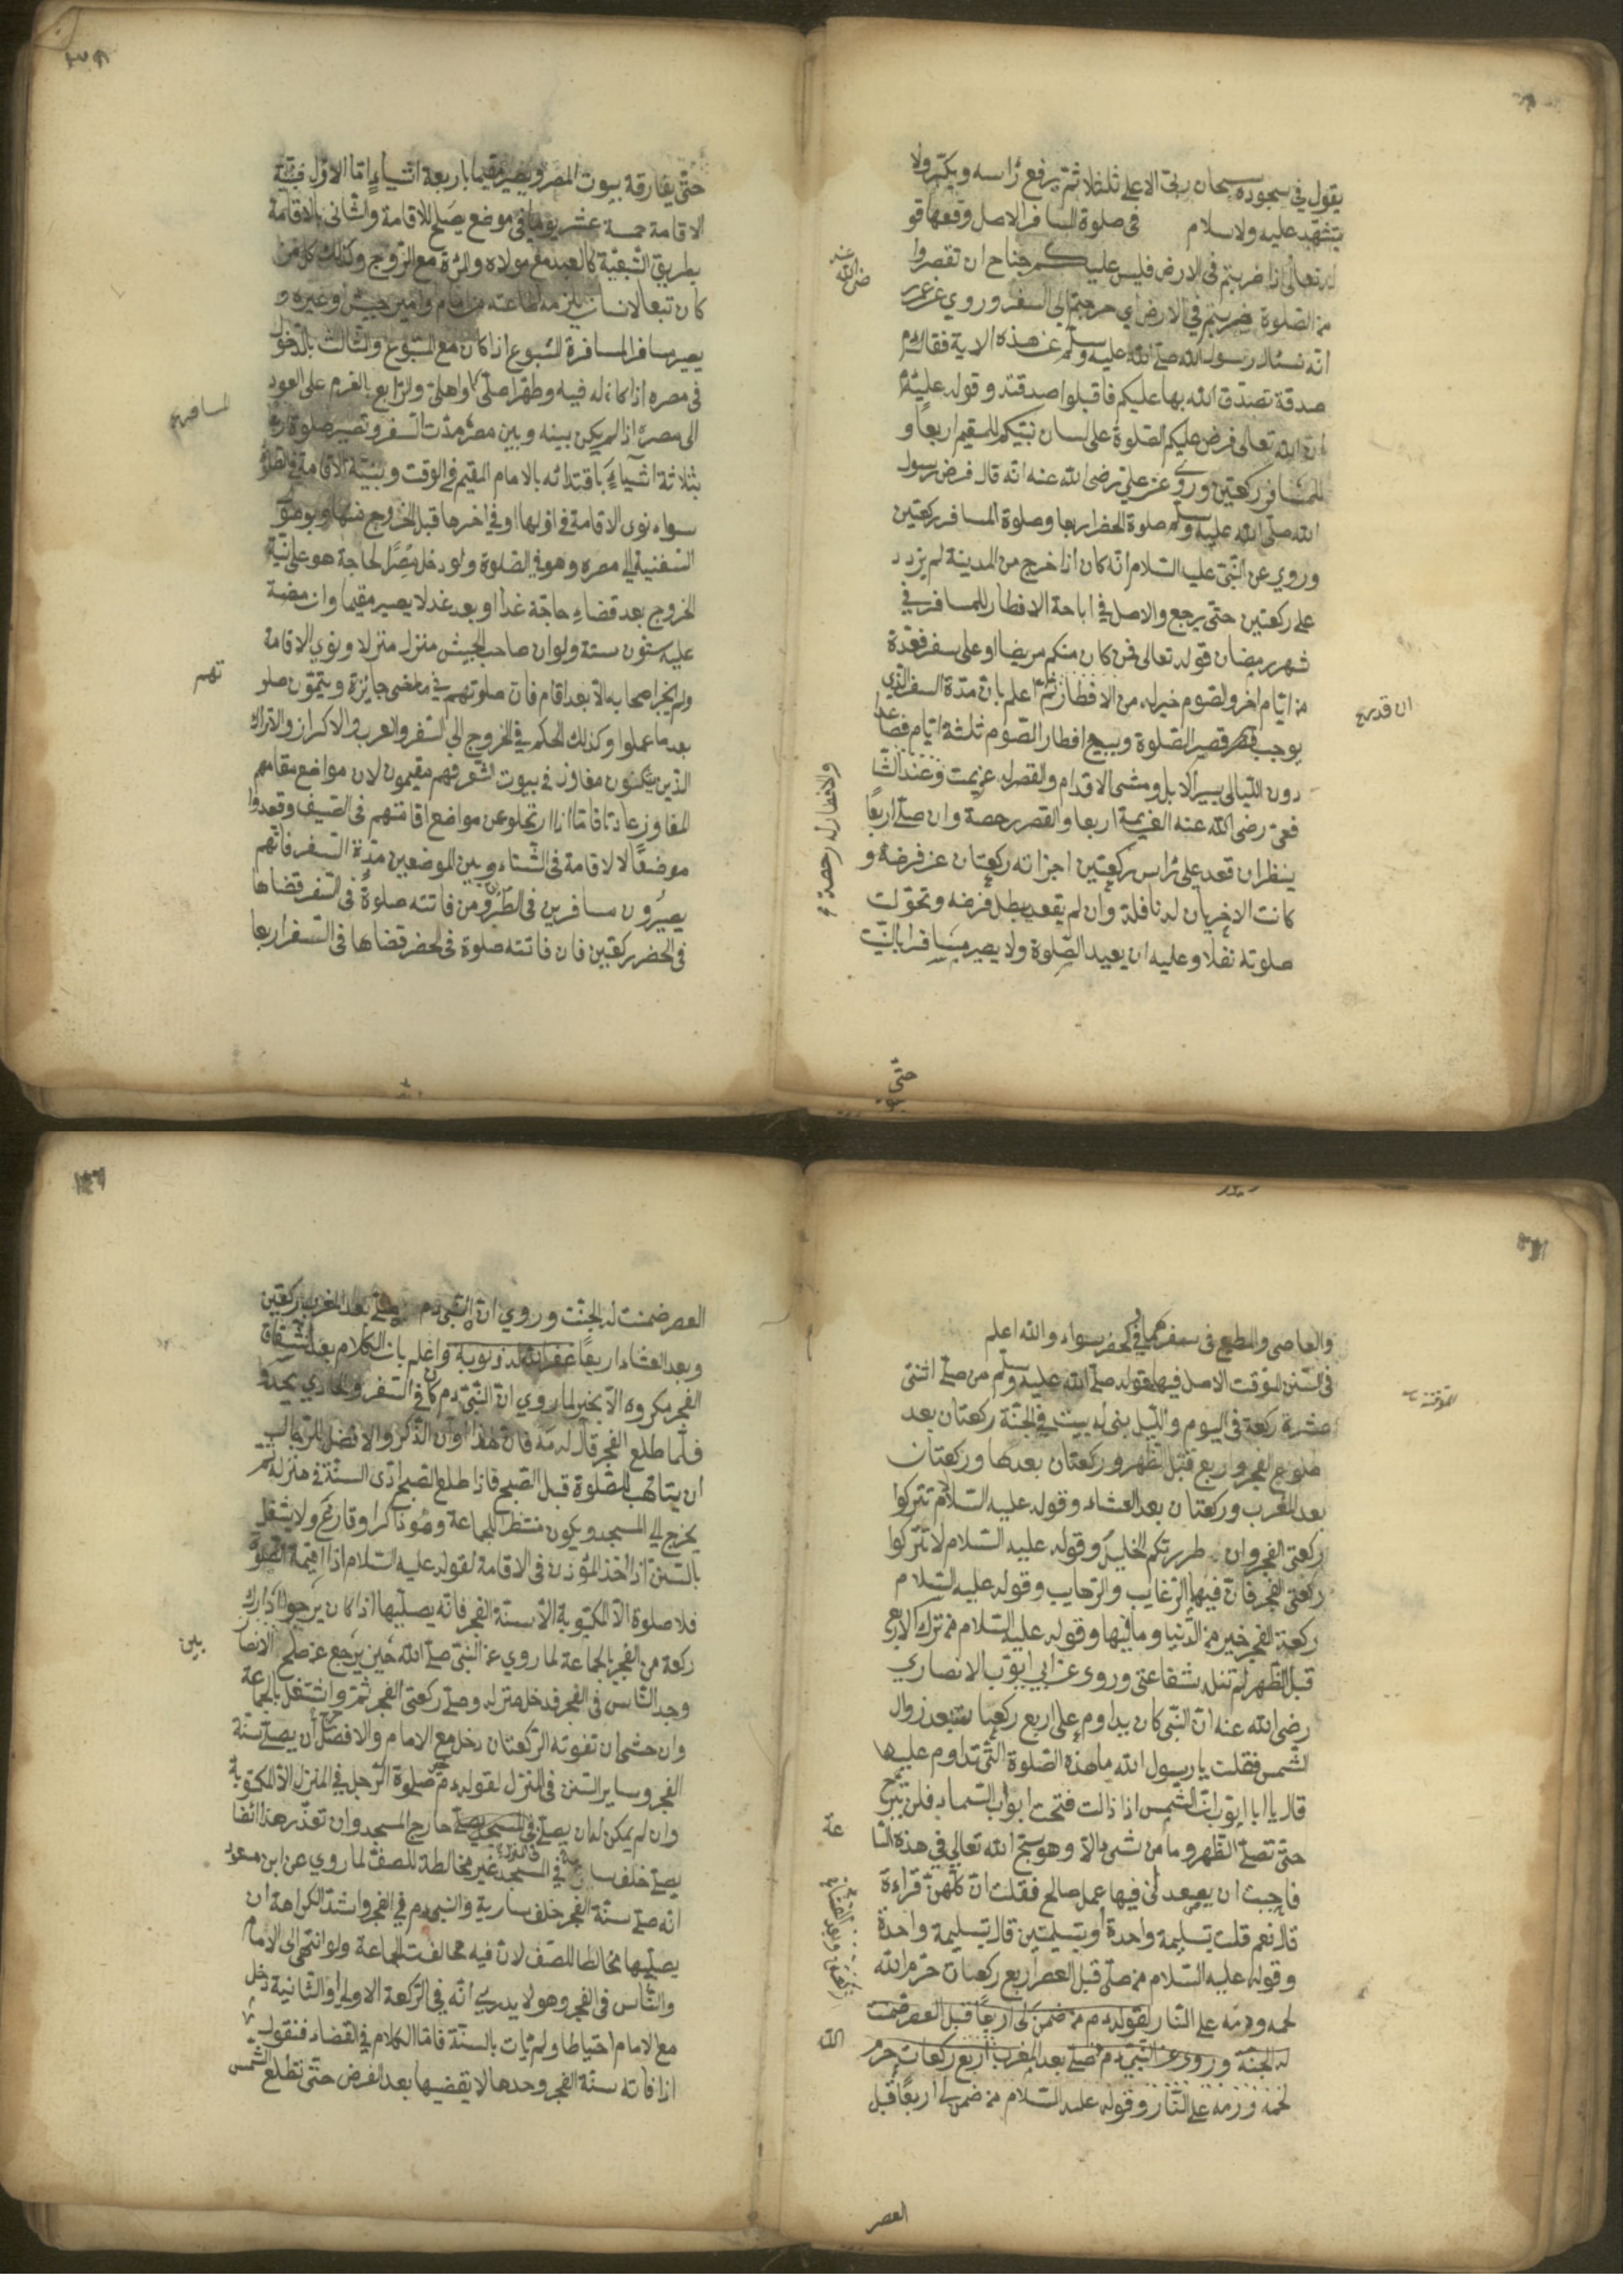 يقول في سجوده سبحان ربي الاعلى ثلثا ثم يرفع راسه ويكبر ولا
يتشهد عليه ولا سلام في صلوة المسافر الاصل وقصها قو
له تعالى اذا ضربتم في الارض فليس عليكم جناح ان تقصروا
من الصلوة ضربتم في الارض اي خرجتم الى السفر وروي عن عمر
رضي الله عنه
انه سئال رسول الله صلى الله عليه وسلم عن هذه الاية فقال
صدقة تصدق الله بها عليكم فاقبلوا صدقته وقوله عليه
ان الله تعالى فرض عليكم الصلوة على لسان نبيكم للمقيم اربعا و
للمسافر ركعتين وروي عن علي رضى الله عنه انه قال فرض رسول
الله صلى الله عليه وسلم صلوة الحضر اربعا وصلوة المسافر ركعتين
وروي عن النبي عليه السلام انه كان اذا خرج من المدينة لم يزد
على ركعتين حتى يرجع والاصل في اباحة الافطار للمسافر في
شهر رمضان قوله تعالى فمن كان منكم مريضا او على سفر فعدة
من ايام اخر والصوم خير له من الافطار ثم اعلم بان مدة السفر الذي
يوجب قصر الصلوة ويبيح افطار الصوم ثلثة ايام فصا
عدا
دون الليالى بسير الابل ومشى الاقدام والقصر له عزيمت وعند الشا
والافطار له رخصة
فعى رضى الله عنه العزيمة اربعا والقصر رخصة وان صلى اربعا
ينظر ان قعد على راس ركعتين اجزاته ركعتان عن فرضه و
كانت الاخريان له نافلة وان لم يقعد بطل فرضه وتحولت
صلوته نفلا وعليه ان يعيد الصلوة ولا يصير مسافرا بالنيت
حتى
حتى يفارقة بيوت المصر ويصير مقيما باربعة اشياء اما الاول فبنية
الاقامة خمسة عشر يوما في موضع يصلح للاقامة والثانى بالاقامة
بطريق التبعية كالعبد مع مولاه والمرءة مع الزوج وكذلك كل من
كان تبعا لانسان يلزمه طاعته من امام وامير جيش او غيره و
يصير مسافرا لمسافرة المتبوع اذا كان مع المتبوع والثالث بالدخول
في مصره اذا كان له فيه وطن اصلى واهلى والرابع بالعزم على العود
الى مصره اذا لم يكن بينه وبين مصره مدت السفر وتصير صلوة
المسافر
بثلاثة اشياء باقتدائه بالامام المقيم في الوقت وبنية الاقامة في الصلوة
سواء نوى الاقامة في اولها او في اخرها قبل الخروج منها وبوصول
السفينة الى مصره وهو في الصلوة ولو دخل مصرا لحاجة هو على نية
الخروج بعد قضاء حاجة غدا او بعد غد لا يصير مقيما وان مضت
عليه ستون سنة ولو ان صاحب الجيش منزل منزلا ونوى الاقامة
ولم يخبر اصحابه الا بعد اقام فان صلوتهم في ما مضى جايزة ويتمون صلو
تهم
بعد ما عملوا وكذلك الحكم في الخروج الى السفر والعرب والاكراد والاتراك
الذين يسكنون مفاوز في بيوت الشعر فهم مقيمون لان مواضع مقامهم
المفاوز عادتا فاما اذا ارتحلوا عن مواضع اقامتهم في الصيف وقصدوا
موضعا للاقامة في الشتاء وبين الموضعين مدة السفر فانهم
يصيرون مسافرين في الطريق ومن فاتته صلوة في السفر قضاها
في الحضر ركعتين فان فاتته صلوة في الحضر قضاها في السفر اربعا
والعاصى والمطيع في سفرهما في الحضر سواء والله اعلم
في السنن الموقت الاصل فيها قوله صلى الله عليه وسلم من صلى اثنتى
عشرة ركعة في اليوم والليل بنى له بيت في الجنة ركعتان بعد
طلوع الفجر واربع قبل الظهر وركعتان بعدها وركعتان
بعد المغرب وركعتان بعد العشاء وقوله عليه السلام لا تتركوا
ركعتي الفجر وان طردتكم الخليل وقوله عليه السلام لا تتركوا
ركعتى الفجر فان فيها الرغايب والرحايب وقوله عليه السلام
ركعة الفجر خير من الدنيا وما فيها وقوله عليه السلام من ترك الاربع
قبل الظهر لم تنله شفاعتى وروى عن ابي ايوب الانصاري
رضى الله عنه ان النبي كان يداوم على اربع ركعات بعد زوال
الشمس فقلت يا رسول الله ما هذه الصلوة التى تداوم عليها
قال يا ابا ايوب ان الشمس اذا زالت فتحت ابواب السماء فلن ترتج
حتى تصلى الظهر وما من شئ الا وهو يسبح الله تعالى في هذه السا
عة
فاحببت ان يصعد لى فيها عمل صالح فقلت ان كلهن قراءة
قال نعم قلت تسليمة واحدة او تسليمتين قال تسليمة واحدة
وقوله عليه السلام من صلى قبل العصر اربع ركعات حرم الله
لحمه ودمه على النار لقوله من ضمن لى اربعا قبل العصر ضمنت
له الجنة وروى عن النبي من صلى بعد المغرب اربع ركعات حرم
الله
لحمه ودمه على النار وقوله عليه السلام من ضمن لى اربعا قبل
العصر
العصر ضمنت له الجنت وروي ان النبي صلى بعد المغرب ركعتين
وبعد العشاء اربعا غفر الله له ذنوبه واعلم بان الكلام بعد انشقاق
الفجر مكروه الا بخير لما روي ان النبي كان في السفر والحادي يحدو
فلما طلع الفجر قال له مه فان هذا اوان الذكر والافضل للرجال
ان يتاهب للصلوة قبل الصبح فاذا طلع الصبح ادى السنة في منزله ثم
يخرج الى المسجد ويكون منتظرا للجماعة وهو ذاكرا وقارئ ولا يشغل
بالسنن اذا اخذ المؤذن في الاقامة لقوله عليه السلام اذا اقيمة الصلوة
فلا صلوة الا المكتوبة الا سنة الفجر فانه يصليها اذا كان يرجوا ادراك
ركعة من الفجر بالجماعة لما روي عن النبي صلى الله حين يرجع عن صلح الانصار
بين
وجد الناس في الفجر فدخل منزله وصلى ركعتى الفجر ثم واشتغل بالجماعة
وان خشى ان تفوته الركعتان دخل مع الامام والافضل ان يصلى سنة
الفجر وساير السنن في المنزل لقوله صلوة الرجل في المنزل الا المكتوبة
وان لم يمكن له ان يصلى في المسجد يصلى خارج المسجد وان تعذر هذا ائضا
يصلى خلف سارية في المسجد غير مخالطة للصف لما روي عن ابن مسعود
انه صلى سنة الفجر خلف سارية والنبي في الفجر واشد الكراهة ان
يصليها مخالطا للصف لان فيه مخالفت الجماعة ولو انتهى الى الامام
والناس في الفجر وهو لا يدري انه في الركعة الاولى او الثانية دخل
مع الامام احتياطا ولم يات بالسنة فاما الكلام في القضاء فنقول
اذا فاته سنة الفجر وحدها لا يقضيها بعد الفرض حتى تطلع الشمس